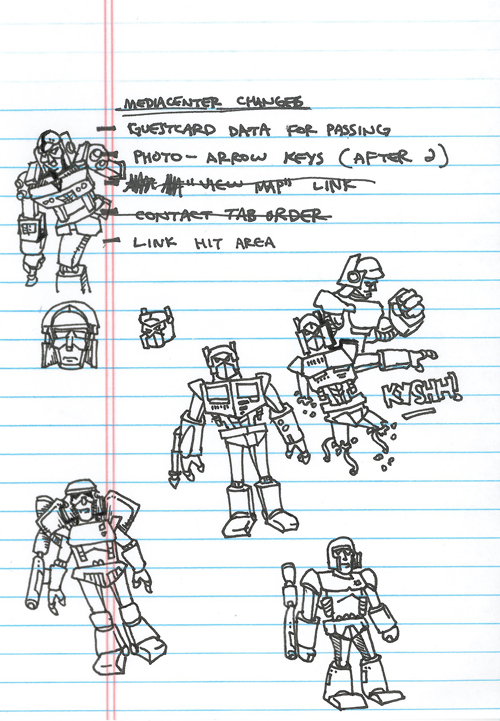 MEDIACENTER CHANGES
- GUESTCARD DATA FOR PASSING
- PHOTO - ARROW KEYS (AFTER 2)
- "VIEW MAP" LINK
- CONTACT TAB ORDER
- LINK HIT AREA
KYSHH!